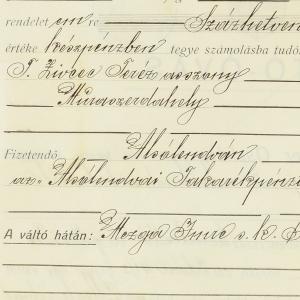 rendelet em re Százhetven
értéke készpénzben tegye számolásba tudó
T. Zivcec Teréz asszony
Muraszerdahely
Fizetendő Alsólendván
az Alsólendvai Takarékpénz
A váltó hátán: Mezga Imre s. k.